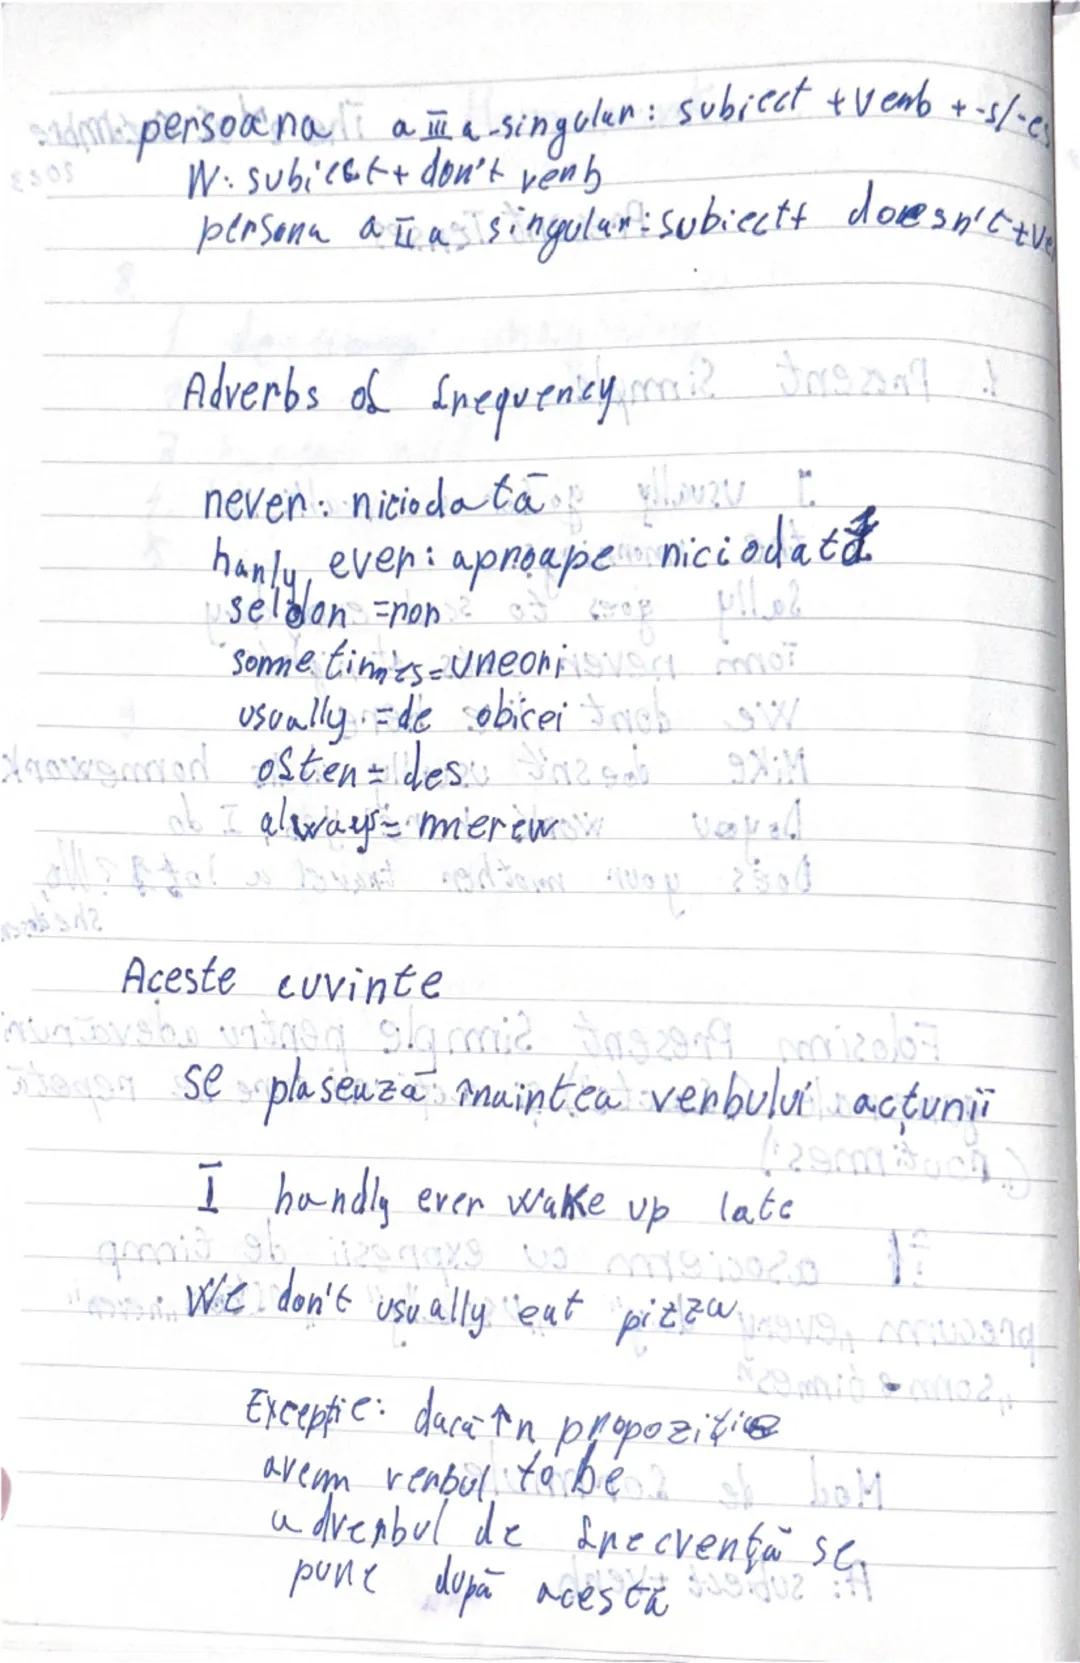 persoana a III a singular: subiect + verb + -s/-es
N: subiect + don't verb
persona a II a singular: subiect + doesn't + ve
Adverbs of frequency
never: niciodată
harly, ever: aproape niciodată
seldon = rar
sometimes = uneori
usually = de obicei
often = des
always = mereu
Aceste cuvinte
se plasează înaintea verbului acțunii
I hardly ever wake up late
We don't usually eat pizza
Excepție: dacă în propoziție
avem verbul to be
adverbul de frecvență se
pune după acesta